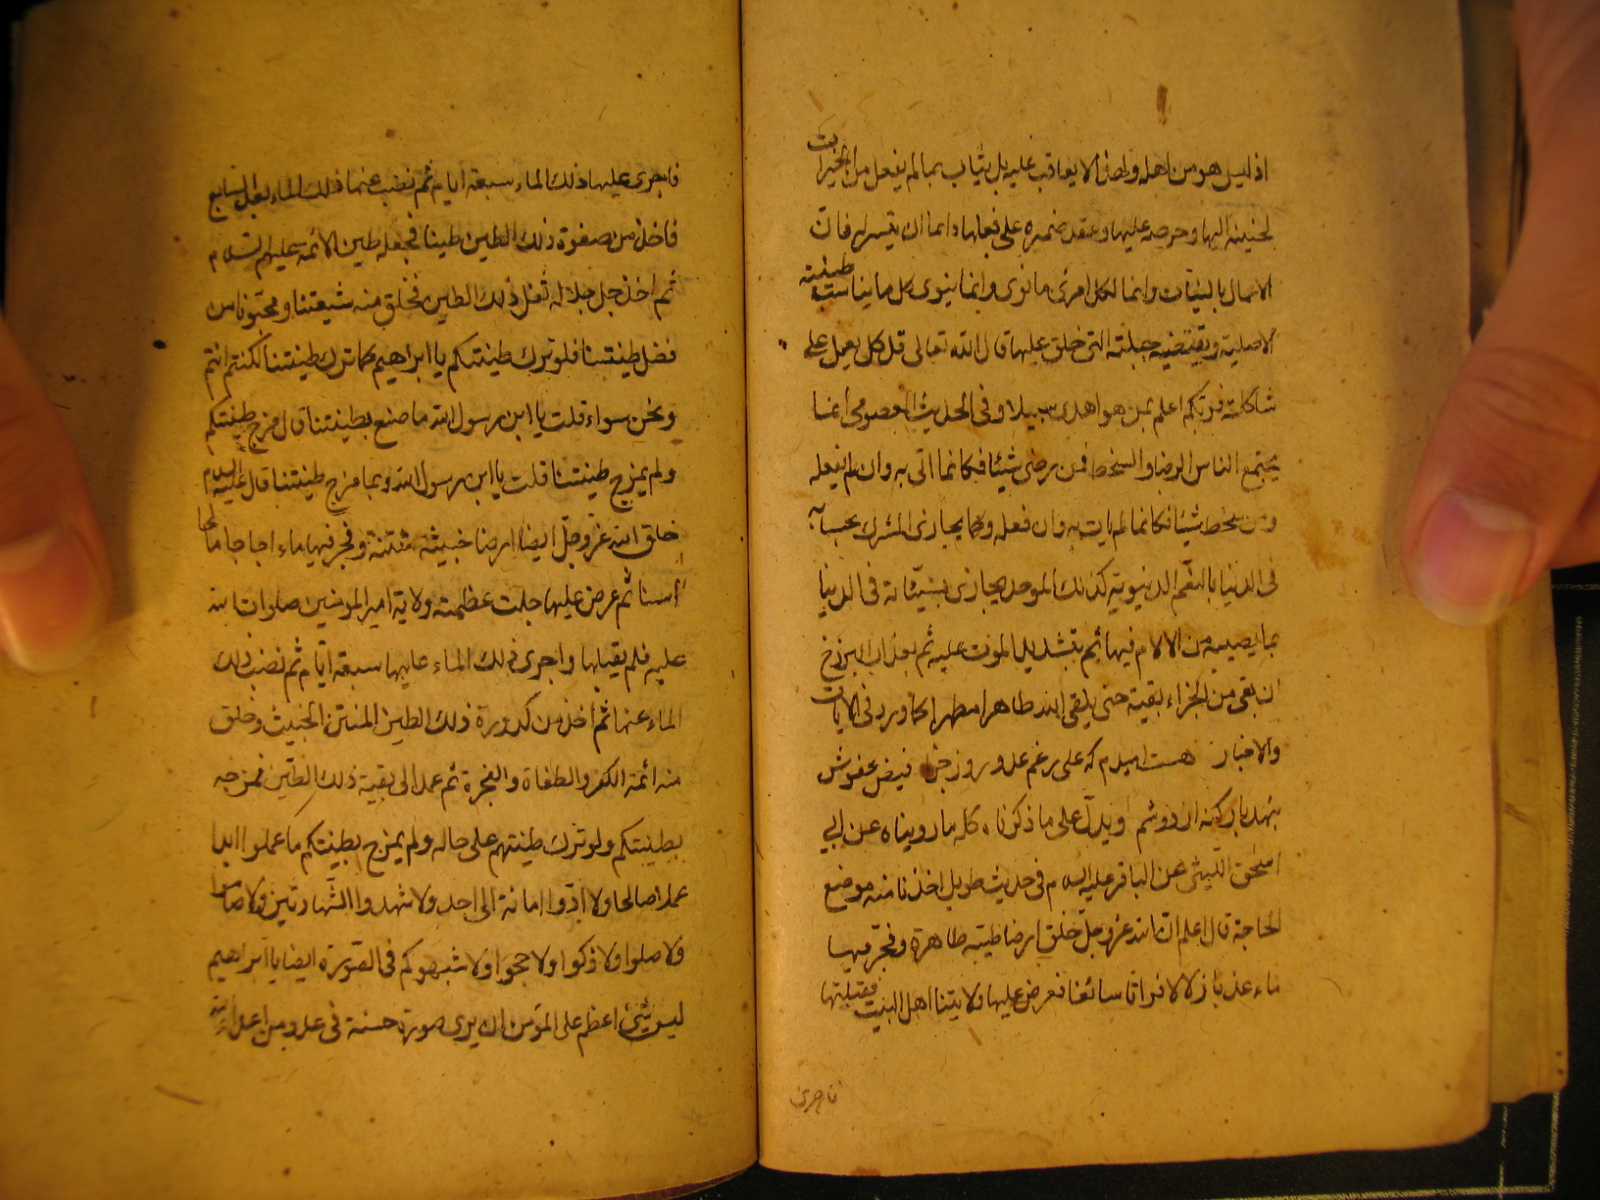 اذ ليس هو من اهله ولهذا لا يعاقب عليه بل يثاب بما لم يفعل من الخيرات
لحنينه اليها وحرصه عليها وعقد ضميره على فعلها دائما ان تيسر له فان
الاعمال بالنيات وانما لكل امرئ ما نوى وانما ينوى كل ما يناسب طينته
الاصلية ويقتضيه جبلته التى خلق عليها قال الله تعالى قل كل يعمل على
شاكلته فربكم اعلم بمن هو اهدى سبيلا وفى الحديث المعصومى انما
يجتمع الناس الرضا والسخط فمن رضى شيئا فكانما اتى به وان لم يفعله
ومن سخط شيئا فكانما لم يات به وان فعله وكما يجازى المشرك بحسناته
فى الدنيا بالنعم الدنيوية كذلك الموحد يجازى بسيئاته فى الدنيا
بما يصيبه من الالام فيها ثم بتشديد الموت عليه ثم بعذاب البرزخ
ان بقى من الجزاء بقية حتى يلقى الله طاهرا مطهرا كما ورد فى الايات
والاخبار هست اميدم كه على رغم عدو روز جزا فيض عفوش
ننهد بار كنه از دوشم ويدل على ما ذكرناه كله ما رويناه عن ابى
اسحق الليثى عن الباقر عليه السلام فى حديث طويل اخذنا منه موضع
الحاجة قال اعلم ان الله عز وجل خلق ارضا طيبة طاهرة وفجر فيها
ماء عذبا زلالا فراتا سائغا فعرض عليها ولايتنا اهل البيت فقبلتها
فاجرى
فاجرى عليها ذلك الماء سبعة ايام ثم نضب عنها ذلك الماء بعد السابع
فاخذ من صفوة ذلك الطين طينا فجعله طين الائمة عليهم السلام
ثم اخذ جل جلاله ثفل ذلك الطين فخلق منه شيعتنا ومحبونا من
فضل طينتنا فلو ترك طينتكم يا ابراهيم كما ترك طينتنا لكنتم انتم
ونحن سواء قلت يا ابن رسول الله ما صنع بطينتنا قال مزج طينتكم
ولم يمزج طينتنا قلت يا ابن رسول الله وبما مزج طينتنا قال عليه السلام
خلق الله عز وجل ايضا ارضا خبيثة منتنة وفجر فيها ماء اجاجا مالحا
آسنا ثم عرض عليها جلت عظمته ولاية امير المومنين صلوات الله
عليه فلم يقبلها واجرى ذلك الماء عليها سبعة ايام ثم نضب ذلك
الماء عنها ثم اخذ من كدورة ذلك الطين المنتن الخبيث وخلق
منه ائمة الكفر والطغاة والفجرة ثم عمد الى بقية ذلك الطين فمزجه
بطينتكم ولو ترك طينتهم على حاله ولم يمزج بطينتكم ما عملوا ابدا
عملا صالحا ولا ادوا امانة الى احد ولا شهدوا الشهادتين ولا صاموا
ولا صلوا ولا زكوا ولا حجوا ولا شبهوكم فى الصورة ايضا يا ابراهيم
ليس شئ اعظم على المؤمن ان يرى صورة حسنة فى عدو من اعداء الله